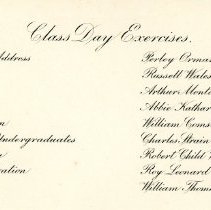 Class Day Exercises.
ddress Perley Orman
Russell Wales
Arthur Monte
Abbie Kathar
n William Coms
Undergraduates Charles Strain
n Robert Child
ration Roy Leonard
William Thom